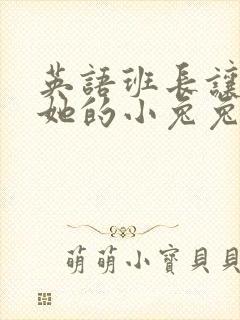 英語班長讓
她的小兔兔
萌萌小寶貝貝